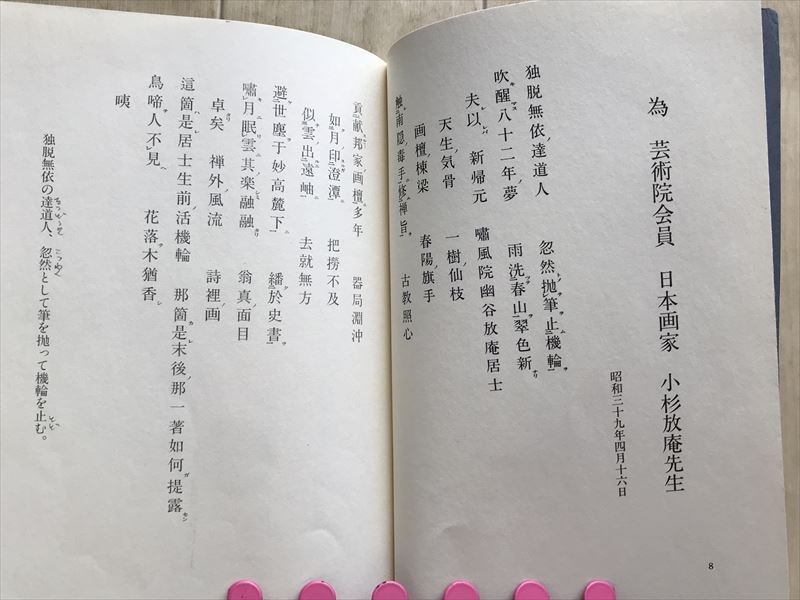 為　芸術院会員　日本画家　小杉放庵先生
昭和三十九年四月十六日
独脱無依達道人　忽然抛筆止機輪
吹醒八十二年夢　雨洗春山翠色新
夫以　新帰元　嘯風院幽谷放庵居士
天生気骨　一樹仙枝
画檀棟梁　春陽旗手
触南隠毒手修禅旨　古教照心
貢献邦家画檀多年　器局淵沖
如月印澄潭　把撈不及
似雲出遠岫　去就無方
避世塵于妙高麓下　繙於史書
嘯月眠雲其楽融融　翁真面目
卓矣　禅外風流　詩裡画
這箇是居士生前活機輪　那箇是末後那一著如何提露
鳥啼人不見　花落木猶香
咦
独脱無依の達道人、忽然として筆を抛って機輪を止む。
8